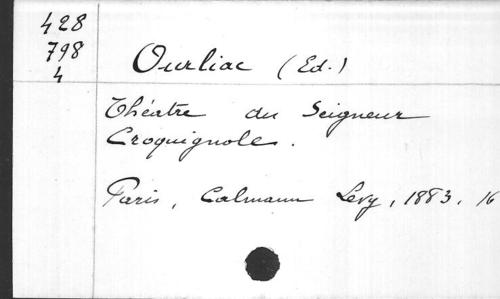 428
798
4
Ourliac (Ed.)
Théatre du Seigneur
Croquignole.
Paris, Calmann Levy, 1883, 16